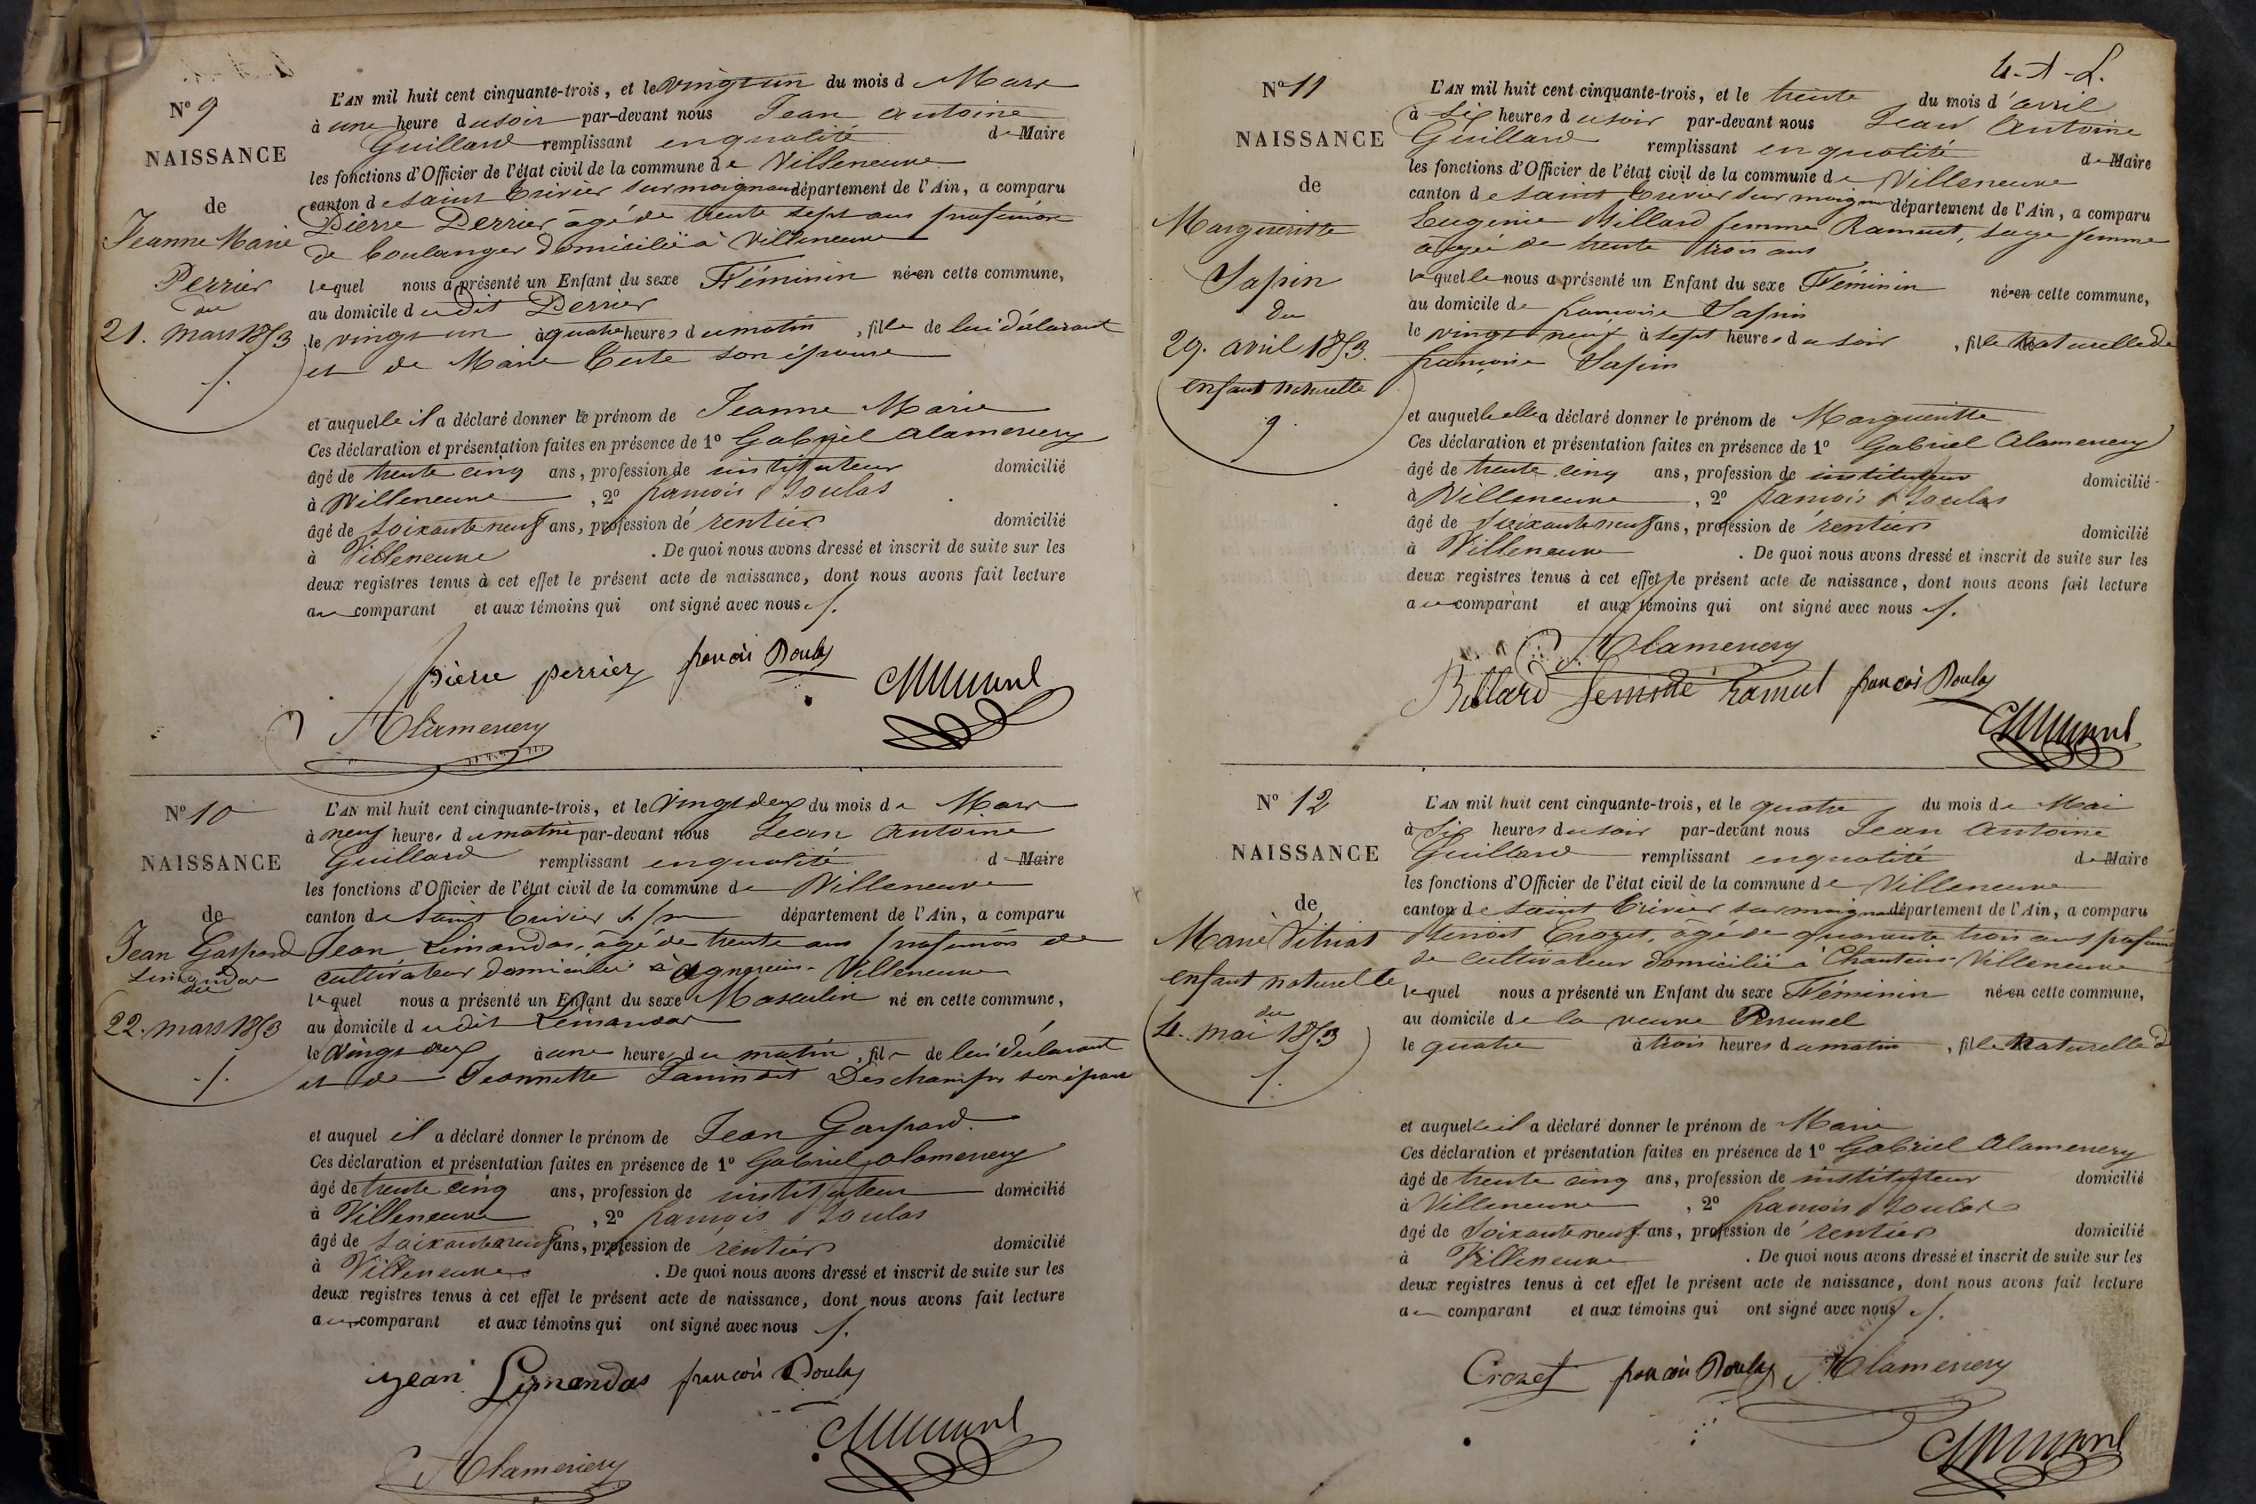 N° 9
NAISSANCE
de
Jeanne Marie
Perrier
du
21. mars 1853
L'AN mil huit cent cinquante-trois, et le vingt un du mois d Mars
à une heure du soir par-devant nous Jean Antoine
Guillard remplissant en qualité de Maire
les fonctions d'Officier de l'état civil de la commune de Villeneuve
canton de Saint Trivier sur moignans département de l'Ain, a comparu
Pierre Perrier, âgé de trente sept ans profession
de boulanger domicilié à Villeneuve
lequel nous a présenté un Enfant du sexe Féminin né en cette commune,
au domicile du dit Perrier
le vingt un à quatre heures du matin, fille de lui déclarant
et de Marie Teste son épouse
et auquelle il a déclaré donner le prénom de Jeanne Marie
Ces déclaration et présentation faites en présence de 1° Gabriel Alamercery
âgé de trente cinq ans, profession de instituteur domicilié
à Villeneuve, 2° françois Doulas
âgé de soixante neuf ans, profession de rentier domicilié
à Villeneuve. De quoi nous avons dressé et inscrit de suite sur les
deux registres tenus à cet effet le présent acte de naissance, dont nous avons fait lecture
au comparant et aux témoins qui ont signé avec nous
pierre perrier françois Doulas
Alamercery
N° 10
NAISSANCE
de
Jean Gaspard
Limandas
du
22. mars 1853
L'AN mil huit cent cinquante-trois, et le vingt deux du mois de Mars
à neuf heures du matin par-devant nous Jean Antoine
Guillard remplissant en qualité d Maire
les fonctions d'Officier de l'état civil de la commune de Villeneuve
canton de Saint Trivier s/m département de l'Ain, a comparu
Jean Limandas, âgé de trente ans profession de
cultivateur domicilié à agnereins - Villeneuve
lequel nous a présenté un Enfant du sexe Masculin né en cette commune,
au domicile du dit Limandas
le vingt deux à une heure du matin, fils de lui déclarant
et de Jeannette dit Deschamps son épouse
et auquel il a déclaré donner le prénom de Jean Gaspard.
Ces déclaration et présentation faites en présence de 1° Gabriel Alamercery
âgé de trente cinq ans, profession de instituteur domicilié
à Villeneuve, 2° françois Doulas
âgé de soixante neuf ans, profession de rentier domicilié
à Villeneuve. De quoi nous avons dressé et inscrit de suite sur les
deux registres tenus à cet effet le présent acte de naissance, dont nous avons fait lecture
au comparant et aux témoins qui ont signé avec nous
jean Limandas françois Doulas
Alamercery
N° 11
NAISSANCE
de
Margueritte
Sapin
du
29. avril 1853.
enfant naturelle
L'AN mil huit cent cinquante-trois, et le trente du mois d'avril
à six heures du soir par-devant nous Jean Antoine
Guillard remplissant en qualité de Maire
les fonctions d'Officier de l'état civil de la commune de Villeneuve
canton de Saint Trivier sur moignans département de l'Ain, a comparu
Eugénie Billard femme Ramuet, sage femme
agée de trente trois ans
laquelle nous a présenté un Enfant du sexe Féminin né en cette commune,
au domicile de françoise Sapin
le vingt neuf à sept heures du soir, fille Naturelle de
françoise Sapin
et auquelle elle a déclaré donner le prénom de Margueritte
Ces déclaration et présentation faites en présence de 1° Gabriel Alamercery
âgé de trente cinq ans, profession de instituteur domicilié
à Villeneuve, 2° françois Doulas
âgé de Soixante neuf ans, profession de rentier domicilié
à Villeneuve. De quoi nous avons dressé et inscrit de suite sur les
deux registres tenus à cet effet le présent acte de naissance, dont nous avons fait lecture
au comparant et aux témoins qui ont signé avec nous
Alamercery
Billard femme ramuet françois Doulas
N° 12
NAISSANCE
de
Marie Vitriat
enfant naturelle
du
4. mai 1853
L'AN mil huit cent cinquante-trois, et le quatre du mois de Mai
à six heures du soir par-devant nous Jean Antoine
Guillard remplissant en qualité de Maire
les fonctions d'Officier de l'état civil de la commune de Villeneuve
canton de Saint Trivier sur moignans département de l'Ain, a comparu
Benoit Crozet, âgé de quarante trois ans profession
de cultivateur domicilié à Chanteins - Villeneuve
lequel nous a présenté un Enfant du sexe Féminin né en cette commune,
au domicile de la veuve
le quatre à trois heures du matin, fille Naturelle d
et auquelle il a déclaré donner le prénom de Marie
Ces déclaration et présentation faites en présence de 1° Gabriel Alamercery
âgé de trente cinq ans, profession de instituteur domicilié
à Villeneuve, 2° françois Doulas
âgé de Soixante neuf ans, profession de rentier domicilié
à Villeneuve. De quoi nous avons dressé et inscrit de suite sur les
deux registres tenus à cet effet le présent acte de naissance, dont nous avons fait lecture
au comparant et aux témoins qui ont signé avec nous
Crozet françois Doulas Alamercery